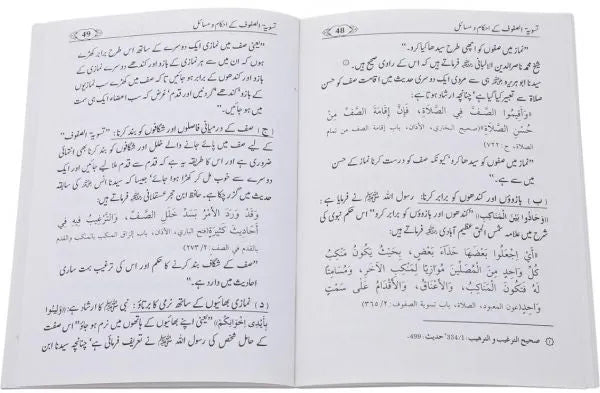 تسویۃ الصفوف کے احکام و مسائل
48
”نماز میں صفوں کو اچھی طرح سیدھا کیا کرو۔“
شیخ محمد ناصر الدین الالبانی رحمہ اللہ فرماتے ہیں کہ اس کے راوی صحیح ہیں۔ ①
سیدنا ابو ہریرہ رضی اللہ عنہ ہی سے مروی ایک دوسری حدیث میں اقامت صف کو حسن
صلاۃ سے تعبیر کیا گیا ہے‘ چنانچہ ارشاد ہوتا ہے:
«وَأَقِيمُوا الصَّفَّ فِي الصَّلَاةِ، فَإِنَّ إِقَامَةَ الصَّفِّ مِنْ
حُسْنِ الصَّلَاةِ»(صحيح البخاري، الأذان، باب إقامة الصف من تمام
الصلاة، ح:٧٢٢)
”نماز میں صف کو سیدھا کرو‘ کیونکہ صف کو درست کرنا نماز کے حسن
میں سے ہے۔“
(ب) بازوؤں اور کندھوں کو برابر کرنا: رسول اللہ ﷺ نے فرمایا ہے:
((وَحَاذُوا بَيْنَ الْمَنَاكِبِ)) ”کندھوں اور بازوؤں کو برابر کرو“ اس حکم نبوی کی
شرح میں علامہ شمس الحق عظیم آبادی رحمہ اللہ فرماتے ہیں:
«أَيِ اجْعَلُوا بَعْضَهَا حَذَاءَ بَعْضٍ، بِحَيْثُ يَكُونُ مَنْكِبُ
كُلِّ وَاحِدٍ مِنَ الْمُصَلِّينَ مُوَازِيًا لِمَنْكِبِ الآخَرِ، وَمُسَامِتًا
لَهُ فَتَكُونُ الْمَنَاكِبُ، وَالأَعْنَاقُ، وَالأَقْدَامُ عَلَى سَمْتٍ
وَاحِدٍ»(عون المعبود، الصلاة، باب تسوية الصفوف: ٢/ ٣٦٥)
① صحیح الترغیب و الترہیب: 334/1‘ حدیث: 499۔
تسویۃ الصفوف کے احکام و مسائل
49
”یعنی صف میں نمازی ایک دوسرے کے ساتھ اس طرح برابر کھڑے
ہوں کہ ان میں سے ہر نمازی کے بازو اور کندھے دوسرے نمازی کے
بازو اور کندھوں کے برابر ہو جائیں تاکہ صف میں کھڑے سب نمازیوں
کے بازو‘ کندھے‘ گردنیں اور قدم‘ غرض کہ سب اعضاء ایک ہی سمت
میں ہو جائیں۔“
(ج) صف کے درمیانی فاصلوں اور شگافوں کو بند کرنا: ”تسویۃ الصفوف“
کے لیے صف میں پائے جانے والے خلل اور شگافوں کو بند کرنا بھی انتہائی
ضروری ہے اور اس کا طریقہ یہ ہے کہ قدم سے قدم ملا لیے جائیں اور ایک
دوسرے سے خوب مل کر کھڑا ہوا جائے‘ جیسا کہ سیدنا انس رضی اللہ عنہ کی سابقہ
حدیث میں گزر چکا ہے۔ حافظ ابن حجر عسقلانی رحمہ اللہ فرماتے ہیں:
وَقَدْ وَرَدَ الأَمْرُ بِسَدِّ خَلَلِ الصَّفِّ، وَالتَّرْغِيبُ فِيهِ فِي
أَحَادِيثَ كَثِيرَةٍ(فتح الباري، الأذان، باب إلزاق المنكب بالمنكب والقدم
بالقدم في الصف: ٢/ ٢٧٣)
”صف کے شگاف بند کرنے کا حکم اور اس کی ترغیب بہت ساری
احادیث میں وارد ہے۔“
(د) نمازی بھائیوں کے ساتھ نرمی کا برتاؤ: نبی ﷺ کا ارشاد ہے: ((وَلِينُوا
بِأَيْدِي إِخْوَانِكُمْ)) ”یعنی اپنے بھائیوں کے ہاتھوں میں نرم ہو جاؤ“ اس صفت
کے حامل شخص کی رسول اللہ ﷺ نے تعریف فرمائی ہے‘ چنانچہ سیدنا ابن